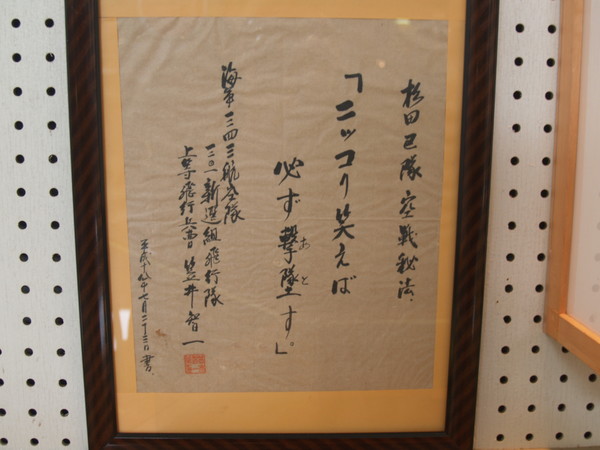 杉田区隊 空戦秘法
「ニッコリ笑えば
必ず撃墜す」
おと
海軍三四三航空隊
三〇一新選組飛行隊
上等飛行兵曹 笠井智一
平成十九年七月二十三日 書